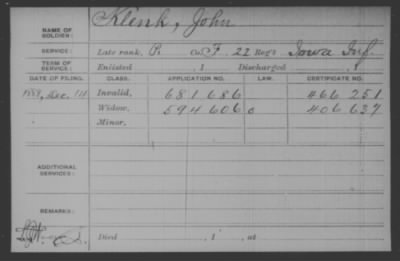 NAME OF SOLDIER: Klenk, John
SERVICE: Late rank, P. Co. F, 22 Reg't Iowa Inf.
TERM OF SERVICE: Enlisted , 1 Discharged , 1
DATE OF FILING. CLASS. APPLICATION NO. LAW. CERTIFICATE NO.
1888, Dec. 14 Invalid, 681 686 466 251
Widow, 594 606 406 637
Minor,
ADDITIONAL SERVICES:
REMARKS:
Died , 1 , at